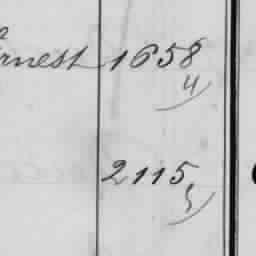 rnest 1658
4)
2115